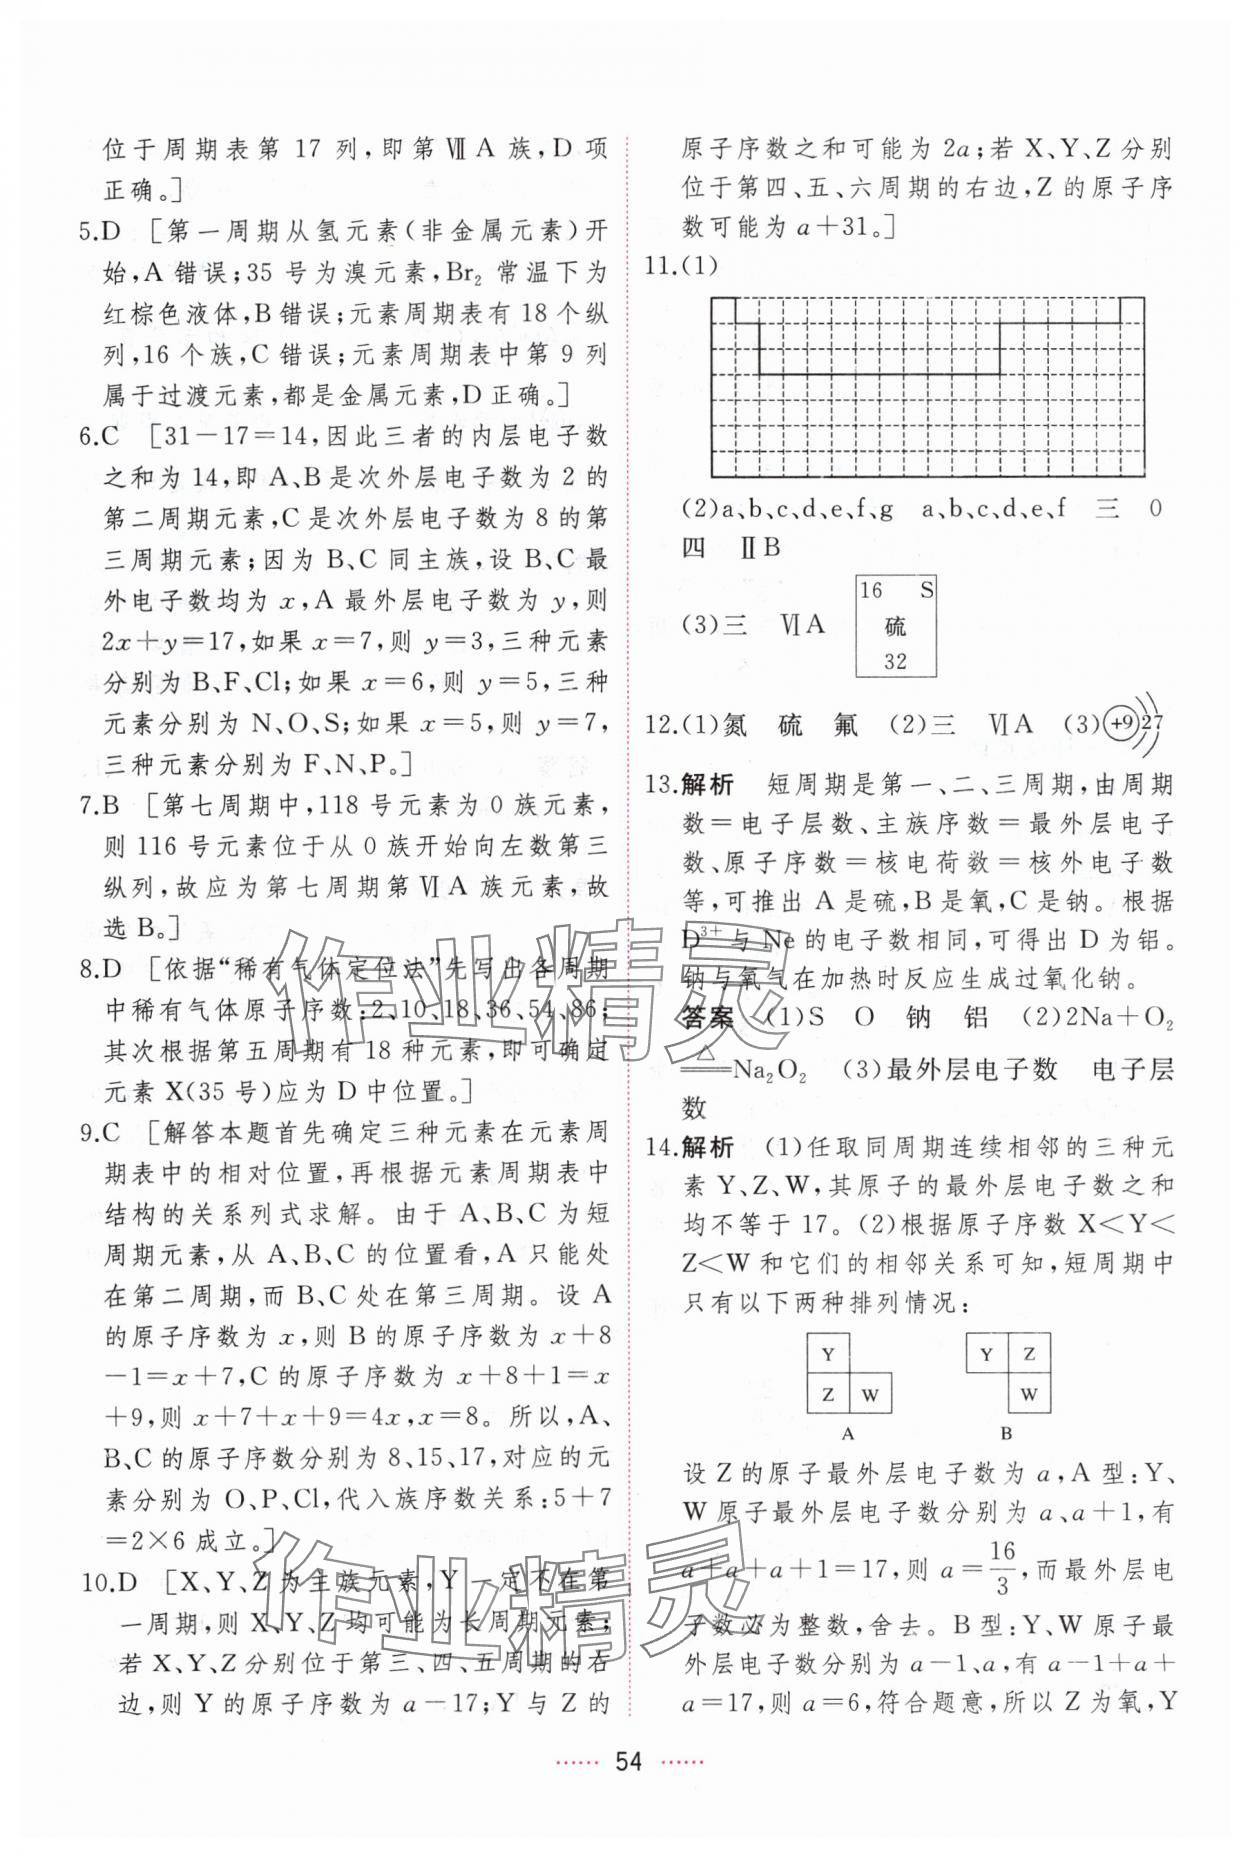 位于周期表第 17 列,即第ⅦA 族,D 项
正确。]
5.D [第一周期从氢元素(非金属元素)开
始,A 错误;35 号为溴元素,Br₂ 常温下为
红棕色液体,B 错误;元素周期表有 18 个纵
列,16 个族,C 错误;元素周期表中第 9 列
属于过渡元素,都是金属元素,D 正确。]
6.C [31-17=14,因此三者的内层电子数
之和为 14,即 A、B 是次外层电子数为 2 的
第二周期元素,C 是次外层电子数为 8 的第
三周期元素;因为 B、C 同主族,设 B、C 最
外电子数均为 x,A 最外层电子数为 y,则
2x+y=17,如果 x=7,则 y=3,三种元素
分别为 B、F、Cl;如果 x=6,则 y=5,三种
元素分别为 N、O、S;如果 x=5,则 y=7,
三种元素分别为 F、N、P。]
7.B [第七周期中,118 号元素为 0 族元素,
则 116 号元素位于从 0 族开始向左数第三
纵列,故应为第七周期第ⅥA 族元素,故
选 B。]
8.D [依据“稀有气体定位法”先写出各周期
中稀有气体原子序数:2、10、18、36、54、86;
其次根据第五周期有 18 种元素,即可确定
元素 X(35 号)应为 D 中位置。]
9.C [解答本题首先确定三种元素在元素周
期表中的相对位置,再根据元素周期表中
结构的关系列式求解。由于 A、B、C 为短
周期元素,从 A、B、C 的位置看,A 只能处
在第二周期,而 B、C 处在第三周期。设 A
的原子序数为 x,则 B 的原子序数为 x+8
-1=x+7,C 的原子序数为 x+8+1=x
+9,则 x+7+x+9=4x,x=8。所以,A、
B、C 的原子序数分别为 8、15、17,对应的元
素分别为 O、P、Cl,代入族序数关系:5+7
=2×6 成立。]
10.D [X、Y、Z 为主族元素,Y 一定不在第
一周期,则 X、Y、Z 均可能为长周期元素;
若 X、Y、Z 分别位于第三、四、五周期的右
边,则 Y 的原子序数为 a-17;Y 与 Z 的
原子序数之和可能为 2a;若 X、Y、Z 分别
位于第四、五、六周期的右边,Z 的原子序
数可能为 a+31。]
11.(1)
(2)a、b、c、d、e、f、g a、b、c、d、e、f 三 0
四 ⅡB
16 S
(3)三 ⅥA 硫
32
12.(1)氮 硫 氟 (2)三 ⅥA (3)+9 2 7
13.解析 短周期是第一、二、三周期,由周期
数=电子层数、主族序数=最外层电子
数、原子序数=核电荷数=核外电子数
等,可推出 A 是硫,B 是氧,C 是钠。根据
D³⁺ 与 Ne 的电子数相同,可得出 D 为铝。
钠与氧气在加热时反应生成过氧化钠。
答案 (1)S O 钠 铝 (2)2Na+O₂
△
══Na₂O₂ (3)最外层电子数 电子层
数
14.解析 (1)任取同周期连续相邻的三种元
素 Y、Z、W,其原子的最外层电子数之和
均不等于 17。(2)根据原子序数 X<Y<
Z<W 和它们的相邻关系可知,短周期中
只有以下两种排列情况:
Y
Z W
A
Y Z
W
B
设 Z 的原子最外层电子数为 a,A 型:Y、
W 原子最外层电子数分别为 a、a+1,有
a+a+a+1=17,则 a=16/3,而最外层电
子数必为整数,舍去。B 型:Y、W 原子最
外层电子数分别为 a-1、a,有 a-1+a+
a=17,则 a=6,符合题意,所以 Z 为氧,Y
54
作业精灵
作业精灵